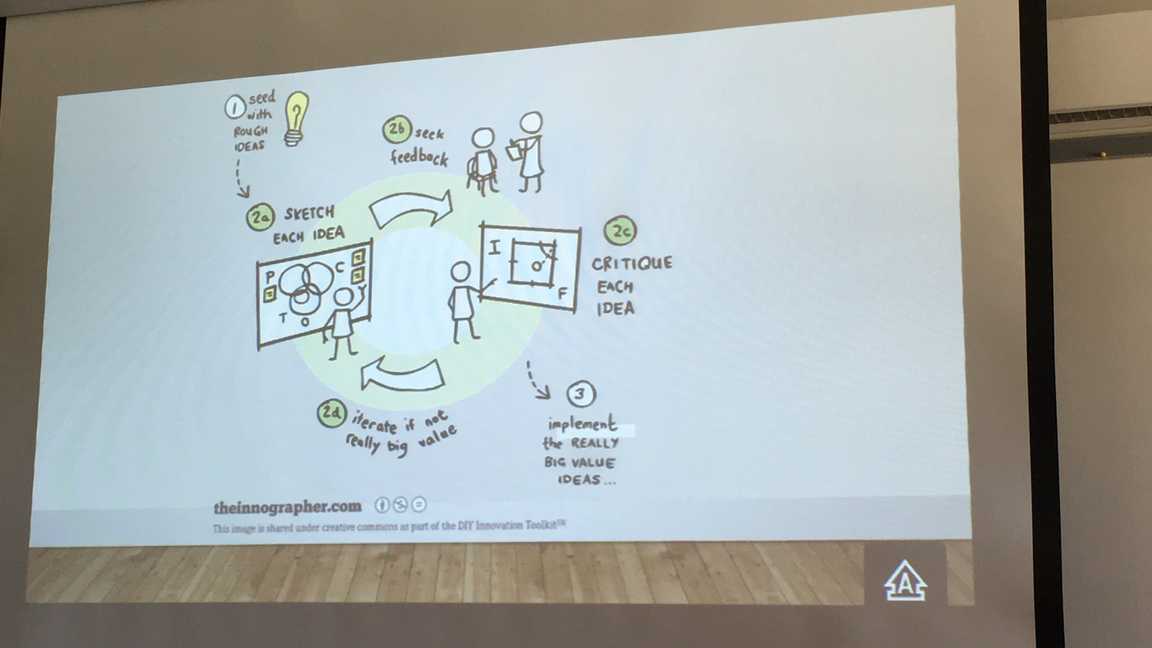 1 seed
with
ROUGH
IDEAS
2a SKETCH
EACH IDEA
P
C
T
O
2b seek
feedback
I
O
F
2c
CRITIQUE
EACH
IDEA
2d iterate if not
really big value
3
implement
the REALLY
BIG VALUE
IDEAS...
theinnographer.com
This image is shared under creative commons as part of the DIY Innovation Toolkit™
A